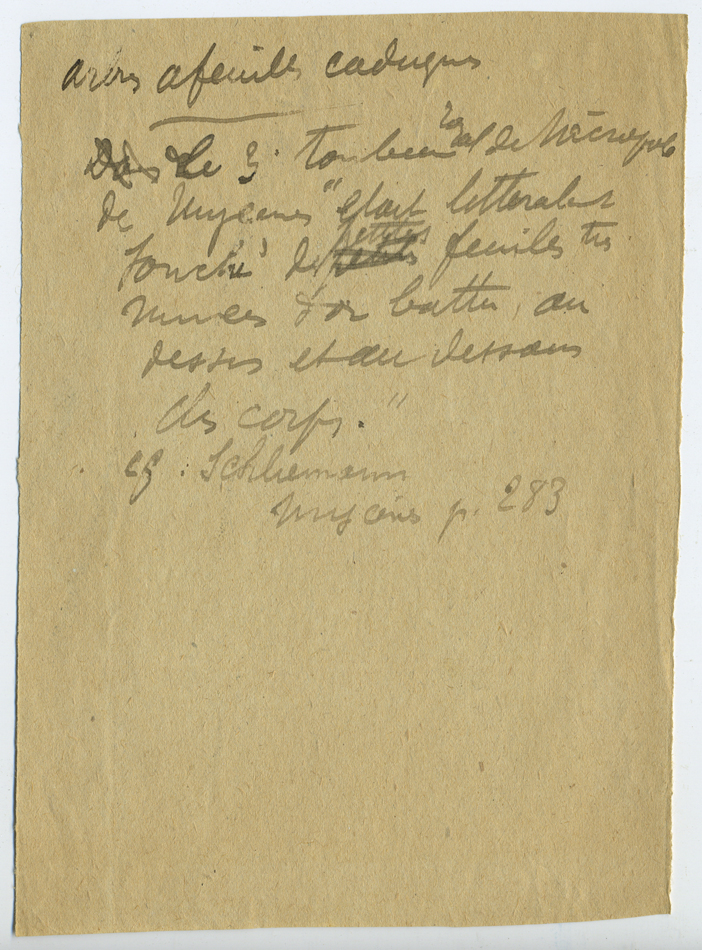 arbres a feuilles caduques
Dans Le 3. tombeau royal de Nécropole
de Mycenes "etait litteralement
jonché de petites petites feuilles tres
minces d'or battu, au
dessus et au dessous
des corps."
cf. Schliemann
Mycènes p. 283